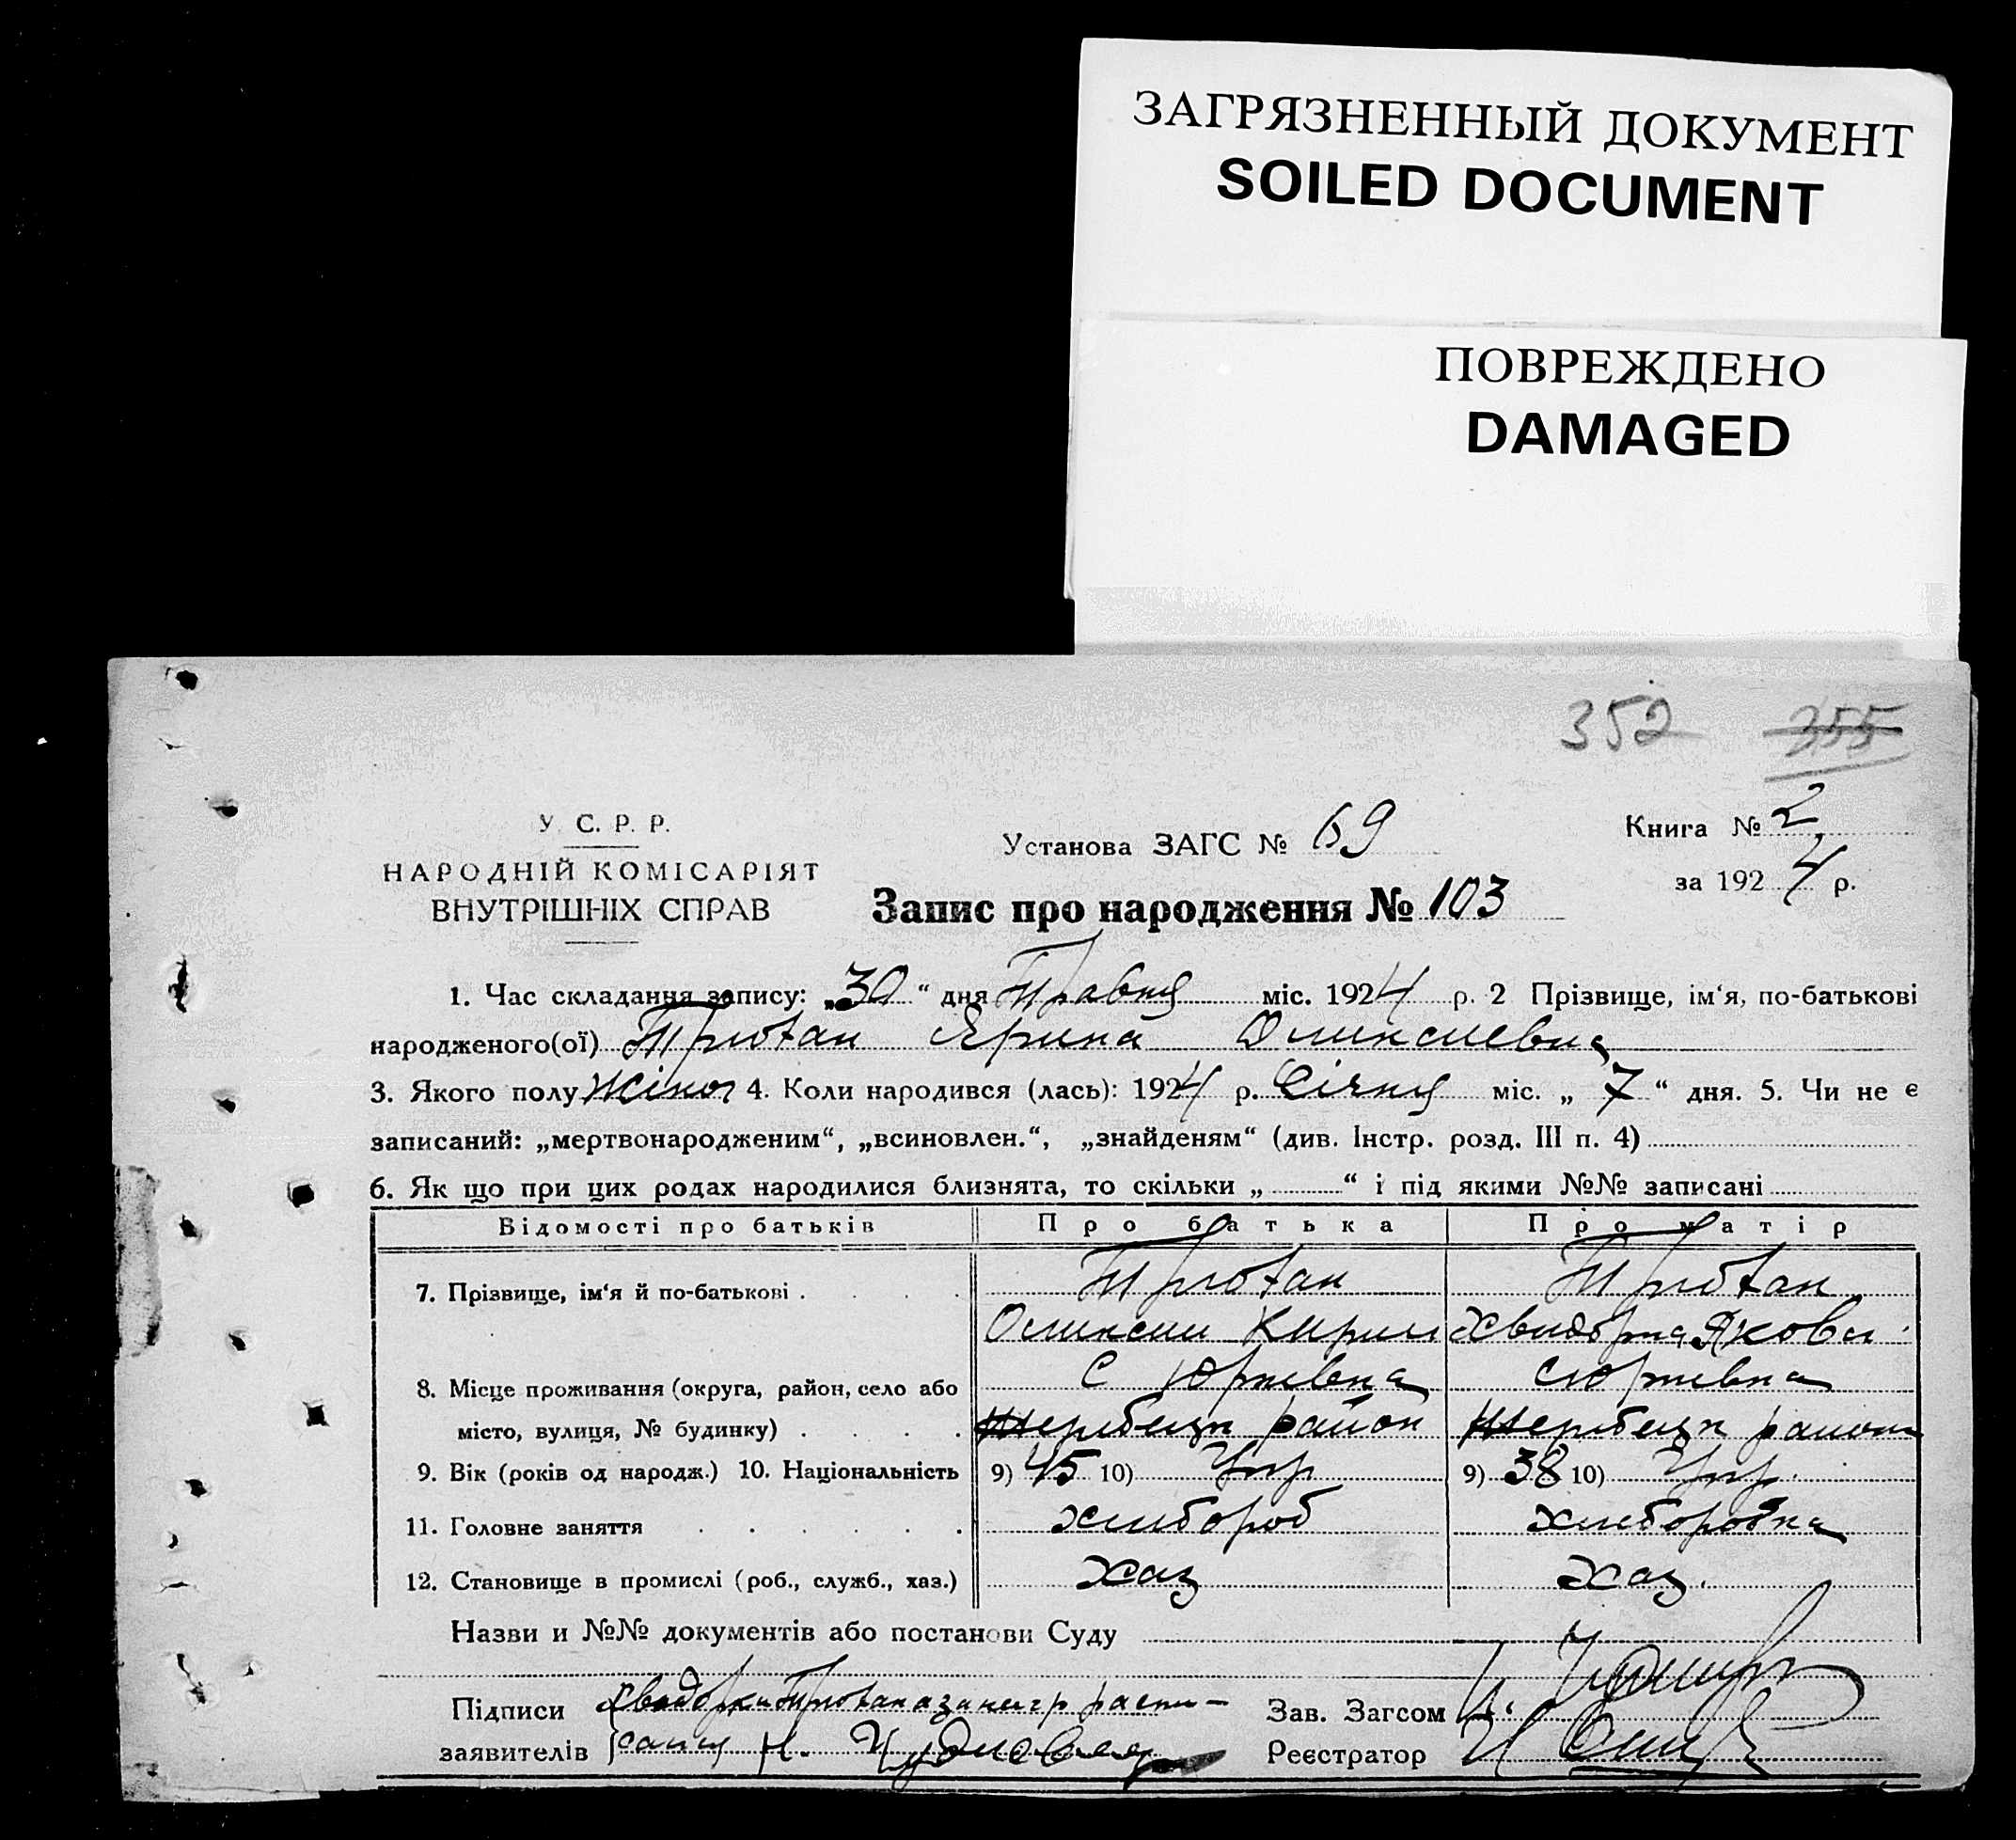 ЗАГРЯЗНЕННЫЙ ДОКУМЕНТ
SOILED DOCUMENT
ПОВРЕЖДЕНО
DAMAGED
352 355
У. С. Р. Р.
НАРОДНІЙ КОМІСАРІЯТ
ВНУТРІШНІХ СПРАВ
Установа ЗАГС № 69
Книга № 2
за 1924 р.
Запис про народження № 103
1. Час складання запису: „30“ дня Травня міс. 1924 р. 2 Прізвище, ім‘я, по-батькові
народженого(ої) Ярина
3. Якого полу Жіноч 4. Коли народився (лась): 1924 р. Січня міс. „ 7 “ дня. 5. Чи не є
записаний: „мертвонародженим“, „всиновлен.“, „знайденям“ (див. Інстр. розд. III п. 4)
6. Як що при цих родах народилися близнята, то скільки „ “ і під якими №№ записані
Відомості про батьків Про батька Про матір
7. Прізвище, ім‘я й по-батькові
8. Місце проживання (округа, район, село або С Юрʼевка
місто, вулиця, № будинку) район
9. Вік (років од народж.) 10. Національність 9) 45 10) Укр 9) 38 10) Укр.
11. Головне заняття хлибороб хлиборобка
12. Становище в промислі (роб., служб., хаз.) Хаз Хаз.
Назви и №№ документів або постанови Суду
Підписи Зав. Загсом
заявителів Реєстратор